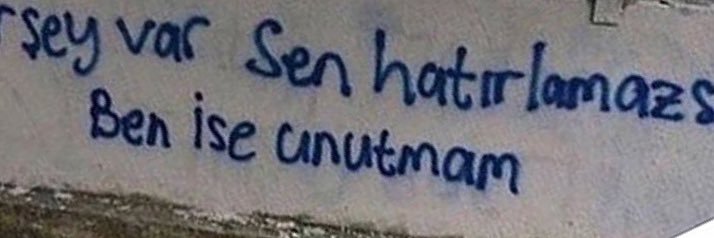 rşey var Sen hatırlamazs
Ben ise unutmam